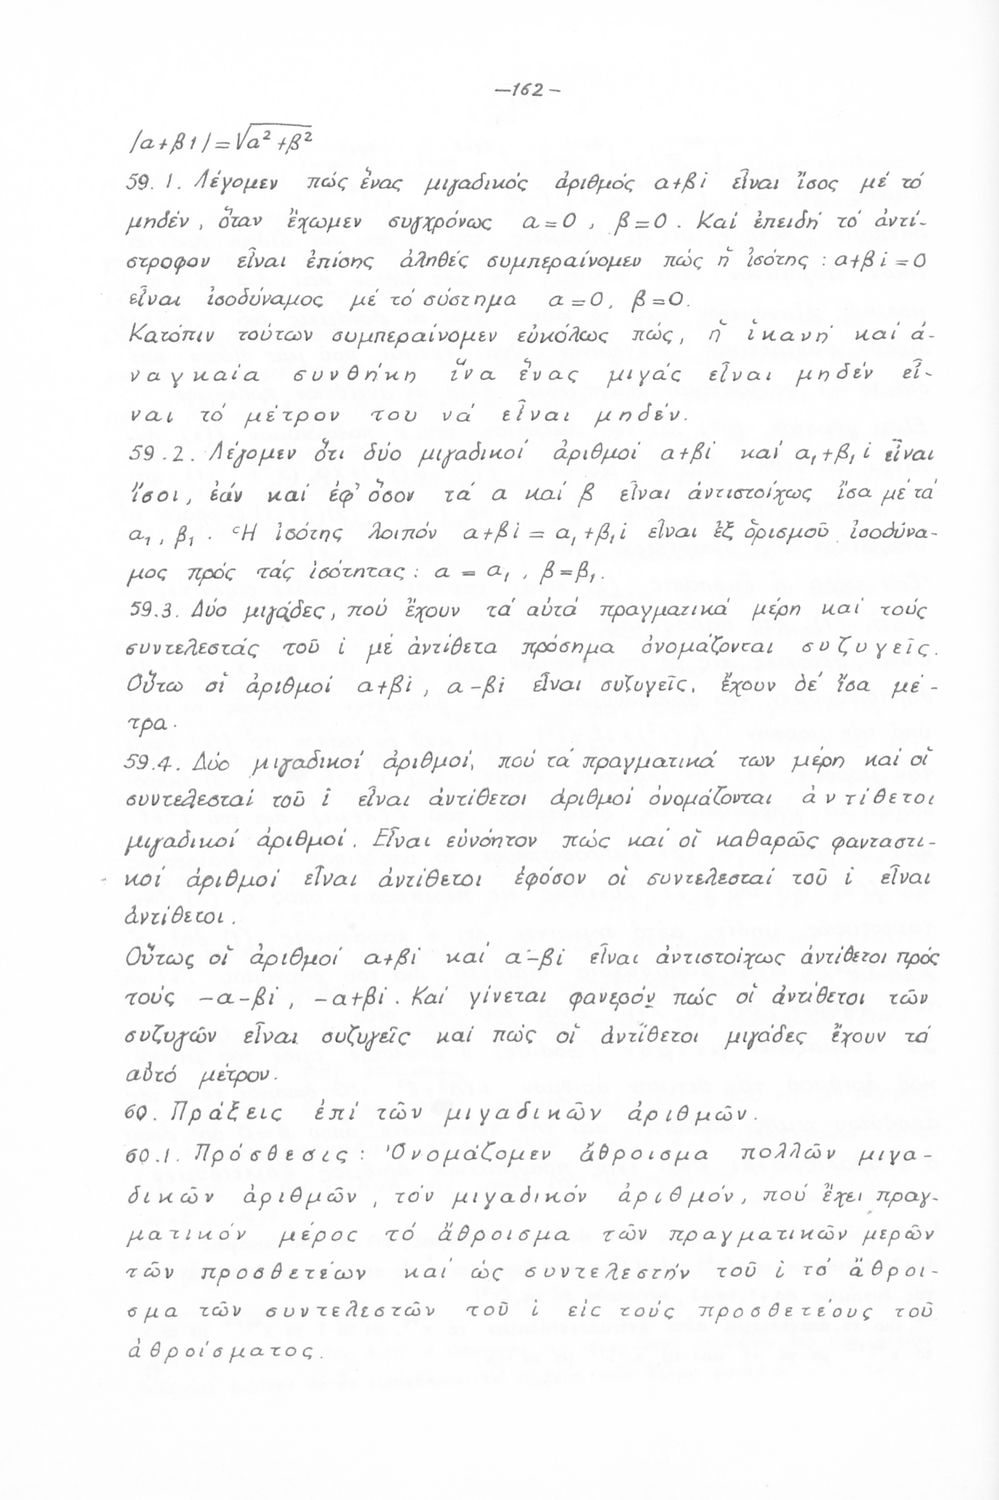 —162—
/α+β1/=√α²+β²
59.1. Λέγομεν πώς ἕνας μιγαδικός ἀριθμός α+βi εἶναι ἴσος μέ τό
μηδέν, ὅταν ἔχωμεν συγχρόνως α=0, β=0. Καί ἐπειδή τό ἀντί-
στροφον εἶναι ἐπίσης ἀληθές συμπεραίνομεν πώς ἡ ἰσότης : α+βi=0
εἶναι ἰσοδύναμος μέ τό σύστημα α=0, β=0.
Κατόπιν τούτων συμπεραίνομεν εὐκόλως πώς, ἡ ἱκανή καί ἀ-
ναγκαία συνθήκη ἵνα ἕνας μιγάς εἶναι μηδέν εἶ-
ναι τό μέτρον του νά εἶναι μηδέν.
59.2. Λέγομεν ὅτι δύο μιγαδικοί ἀριθμοί α+βi καί α₁+β₁i εἶναι
ἴσοι, ἐάν καί ἐφ' ὅσον τά α καί β εἶναι ἀντιστοίχως ἴσα μέ τά
α₁, β₁. Ἡ ἰσότης λοιπόν α+βi = α₁+β₁i εἶναι ἐξ ὁρισμοῦ ἰσοδύνα-
μος πρός τάς ἰσότητας : α = α₁, β=β₁.
59.3. Δύο μιγάδες, πού ἔχουν τά αὐτά πραγματικά μέρη καί τούς
συντελεστάς τοῦ i μέ ἀντίθετα πρόσημα ὀνομάζονται συζυγεῖς.
Οὕτω οἱ ἀριθμοί α+βi, α-βi εἶναι συζυγεῖς, ἔχουν δέ ἴσα μέ-
τρα.
59.4. Δύο μιγαδικοί ἀριθμοί, πού τά πραγματικά των μέρη καί οἱ
συντελεσταί τοῦ i εἶναι ἀντίθετοι ἀριθμοί ὀνομάζονται ἀντίθετοι
μιγαδικοί ἀριθμοί. Εἶναι εὐνόητον πώς καί οἱ καθαρῶς φανταστι-
κοί ἀριθμοί εἶναι ἀντίθετοι ἐφόσον οἱ συντελεσταί τοῦ i εἶναι
ἀντίθετοι.
Οὕτως οἱ ἀριθμοί α+βi καί α-βi εἶναι ἀντιστοίχως ἀντίθετοι πρός
τούς -α-βi, -α+βi. Καί γίνεται φανερόν πώς οἱ ἀντίθετοι τῶν
συζυγῶν εἶναι συζυγεῖς καί πώς οἱ ἀντίθετοι μιγάδες ἔχουν τό
αὐτό μέτρον.
60. Πράξεις ἐπί τῶν μιγαδικῶν ἀριθμῶν.
60.1. Πρόσθεσις : Ὀνομάζομεν ἄθροισμα πολλῶν μιγα-
δικῶν ἀριθμῶν, τόν μιγαδικόν ἀριθμόν, πού ἔχει πραγ-
ματικόν μέρος τό ἄθροισμα τῶν πραγματικῶν μερῶν
τῶν προσθετέων καί ὡς συντελεστήν τοῦ i τό ἄθροι-
σμα τῶν συντελεστῶν τοῦ i εἰς τούς προσθετέους τοῦ
ἀθροίσματος.